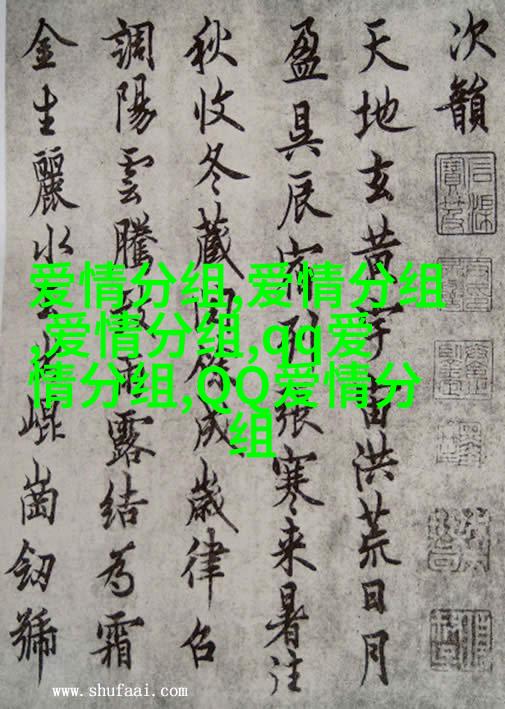 次韻
天地玄黄宇宙洪荒日月
盈昃辰宿列張寒来暑往
秋收冬藏閏餘成歲律召
調陽雲騰致雨露結為霜
金生麗水崐崗劒號
爱情分组,爱情分组
,爱情分组,qq爱
情分组,QQ爱情分
组
www.shufaai.com